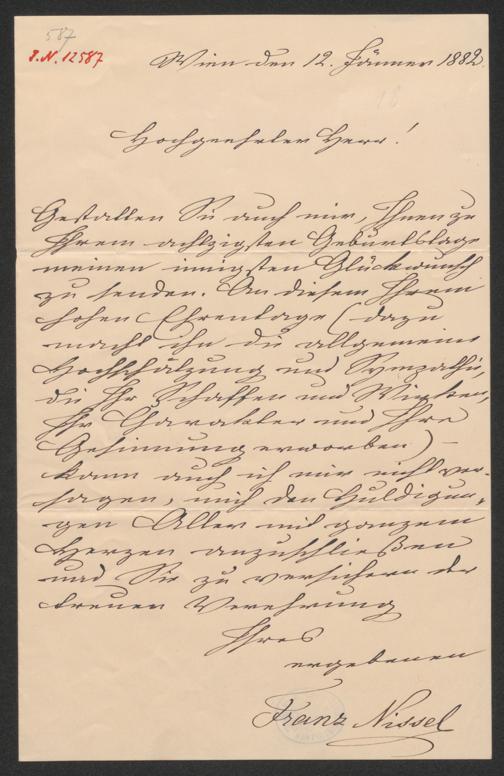 587
I.N. 12587
Wien den 12. Jänner 1882.
Hochgeehrter Herr!
Gestatten Sie auch mir, Ihnen zu
Ihrem achtzigsten Geburtstage
meinen innigsten Glückwunsch
zu senden. An diesem Ihrem
hohen Ehrentage (dazu
macht ihn die allgemeine
Hochschätzung und Sympathie,
die Ihr Schaffen und Wirken,
Ihr Charakter und Ihre
Gesinnung erworben) –
kann auch ich mir nicht ver-
sagen, mich den Huldigun-
gen Aller mit ganzem
Herzen anzuschließen
und Sie zu versichern der
treuen Verehrung
Ihres
ergebenen
Franz Nissel